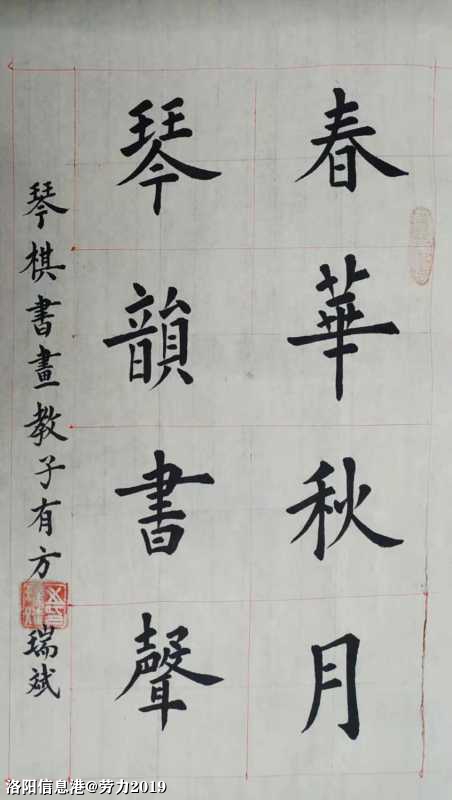 春華秋月
琴韻書聲
琴棋書畫教子有方
瑞斌
洛阳信息港@劳力2019